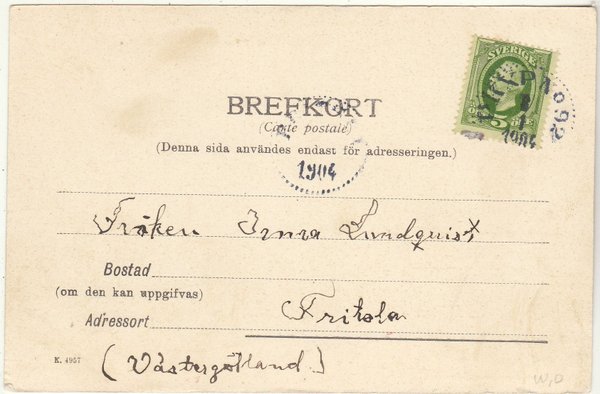 SVERIGE
5
PKXP No 92
1904
BREFKORT
(Carte postale)
(Denna sida användes endast för adresseringen.)
1904
Fröken Irma Lundquist
Bostad
(om den kan uppgifvas)
Fritsla
Adressort
(Västergötland)
K. 4957
W,O